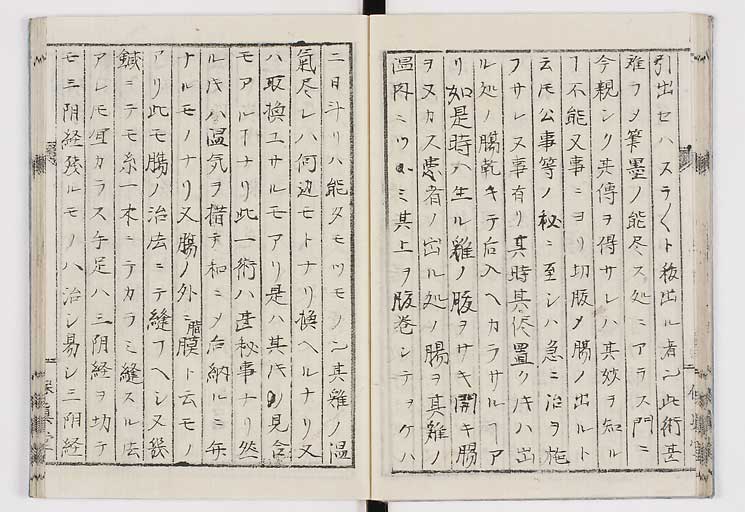 引出セハスラ〱ト抜出ル者也此術甚
難フメ筆墨ノ能尽ス処ニアラス門ニ
今親シク其傳ヲ得サレハ其妙ヲ知ル
ヿ不能又事ニヨリ切腹メ腸ノ出ルト
云𪜈公事等ノ秘ニ至シハ急ニ治ヲ施
フサレ又事有リ其時其侭置クキハ出
ル処ノ腸乾キテ后入ヘカラサルヿア
リ如是時ハ生ル雞ノ腹ヲサキ開キ腸
ヲヌカス患者ノ出ル処ノ腸ヲ其雞ノ
温肉ニツヽミ其上ヲ腹巻シテヲケハ
二日斗リハ能タモツモノ也其雞ノ温
氣尽レハ何辺モトナリ換ヘルナリ又
ハ取換ユサルモアリ是ハ其𪜈ノ見合
モアルヿナリ此一術ハ甚秘事ナリ然
ル𪜈ハ温気ヲ措テ和ニメ后納ルニ
ナルモノナリ又腸ノ外ニ脂膜ト云モノ
アリ此モ腸ノ治法ニテ縫フヘシ又幾
鍼ニテモ糸一本ニテカラミ縫スル法
アレ𪜈宜カラス手足ハ三阴経ヲ切テ
モ三阴経残ルモノハ治シ易シ三阴経